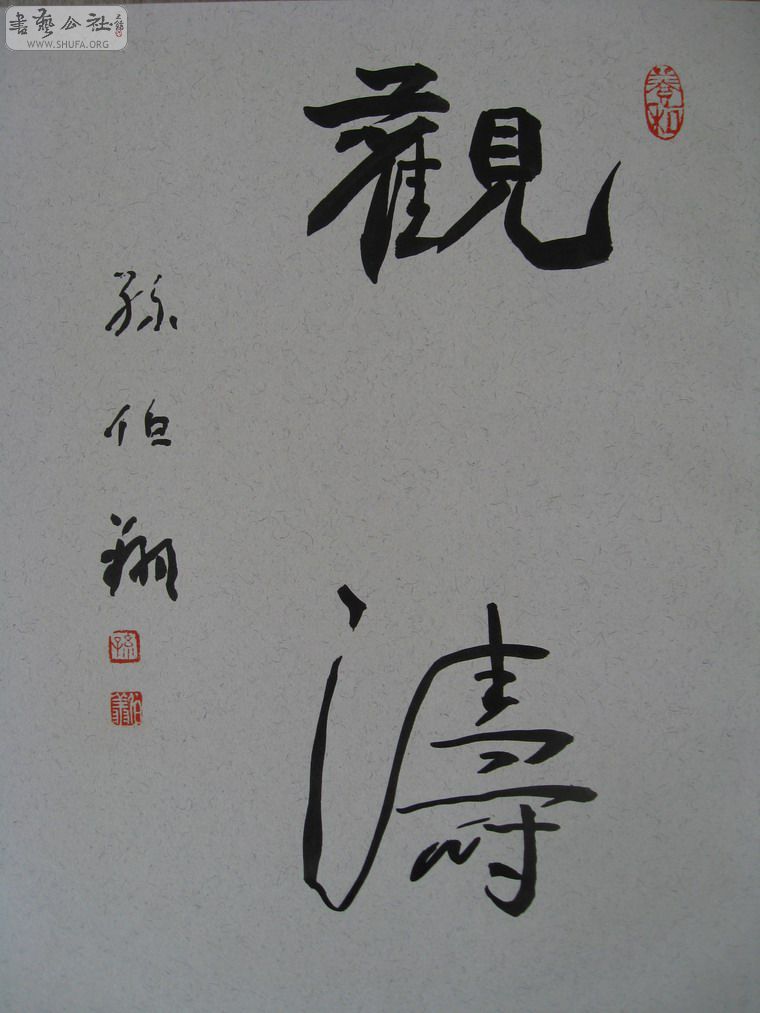 觀濤
孫伯翔
書藝公社
WWW.SHUFA.ORG